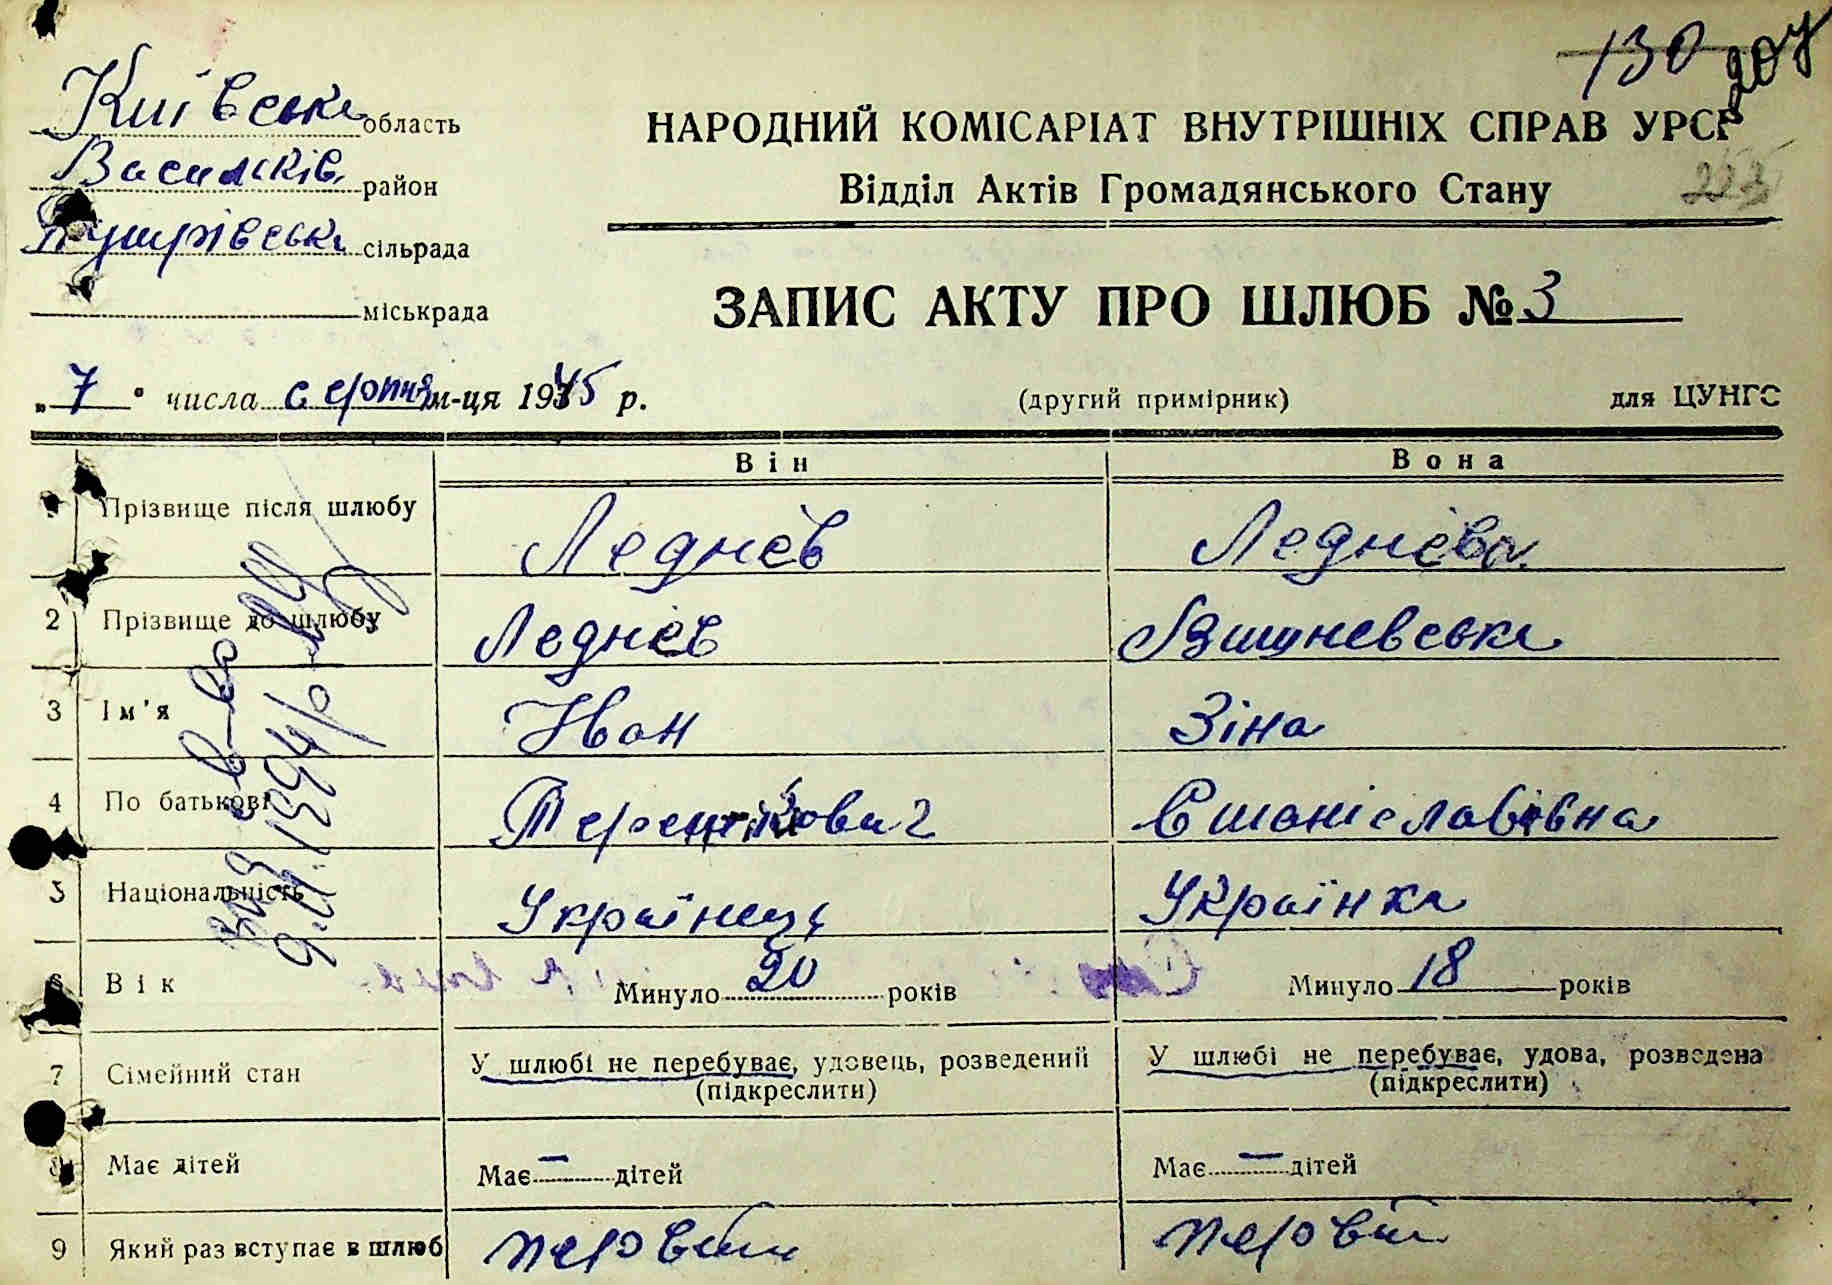 130 207
Київська область
Васильків. район
сільрада
міськрада
НАРОДНИЙ КОМІСАРІАТ ВНУТРІШНІХ СПРАВ УРСР
Відділ Актів Громадянського Стану
223
ЗАПИС АКТУ ПРО ШЛЮБ № 3
„7" числа серпня м-ця 1945 р. (другий примірник) для ЦУНГС
Він Вона
Прізвище після шлюбу Леднєв Леднєва
2 Прізвище до шлюбу Леднєв Вишневська
3 Ім'я Іван Зіна
4 По батькові Терентієвич Станіславівна
5 Національність Українець Українка
6 Вік Минуло 20 років Минуло 18 років
7 Сімейний стан У шлюбі не перебуває, удовець, розведений (підкреслити) У шлюбі не перебуває, удова, розведена (підкреслити)
8 Має дітей Має — дітей Має — дітей
9 Який раз вступає в шлюб первий первий